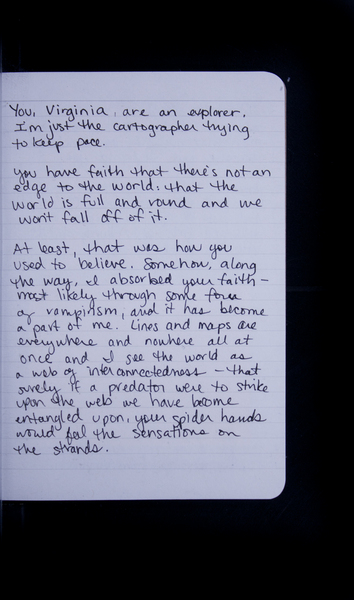 You, Virginia, are an explorer.
I'm just the cartographer trying
to keep pace.
you have faith that there's not an
edge to the world: that the
world is full and round and we
won't fall off of it.
At least, that was how you
used to believe. Somehow, along
the way, I absorbed your faith -
most likely through some form
of vampirism, and it has become
a part of me. Lines and maps are
everywhere and nowhere all at
once and I see the world as
a web of interconnectedness - that
surely if a predator were to strike
upon the web we have become
entangled upon, your spider hands
would feel the sensations on
the strands.